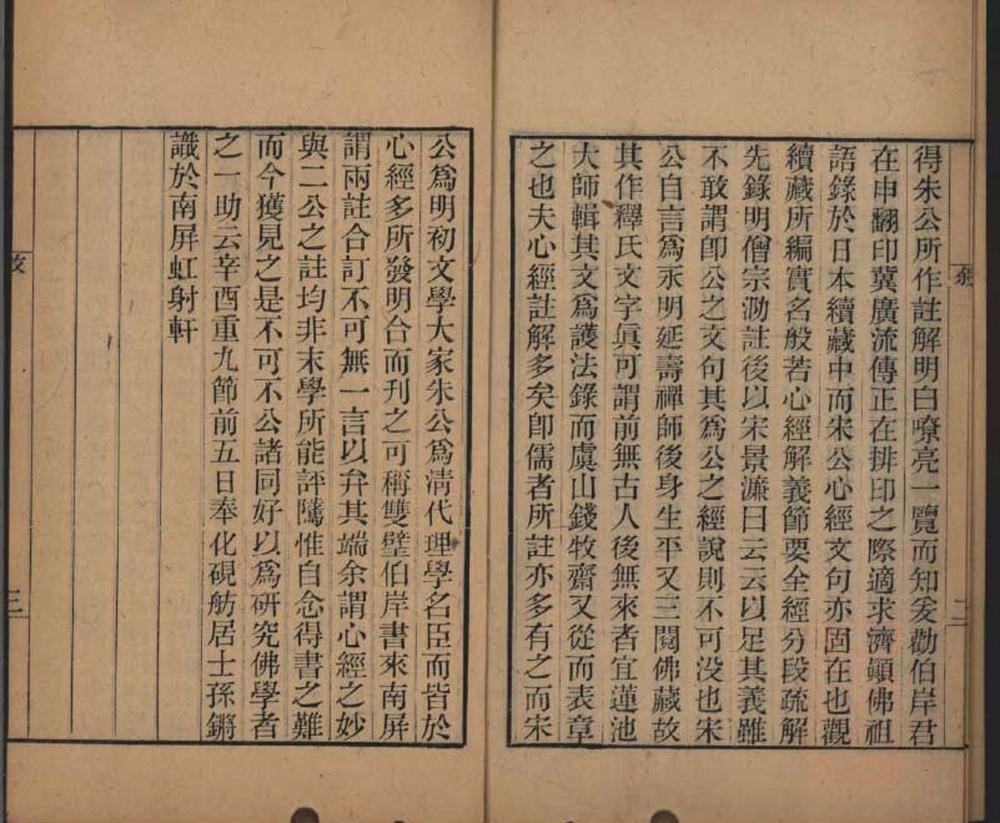 得朱公所作註解明白嘹亮一覽而知爰勸伯岸君
在申翻印冀廣流傳正在排印之際適求濟顚佛祖
語錄於日本續藏中而宋公心經文句亦固在也觀
續藏所編實名般若心經解義節要全經分段疏解
先錄明僧宗泐註後以宋景濂曰云云以足其義雖
不敢謂卽公之文句其爲公之經說則不可没也宋
公自言爲永明延壽禪師後身生平又三閱佛藏故
其作釋氏文字眞可謂前無古人後無來者宜蓮池
大師輯其文爲護法錄而虞山錢牧齋又從而表章
之也夫心經註解多矣卽儒者所註亦多有之而宋
二
公爲明初文學大家朱公爲清代理學名臣而皆於
心經多所發明合而刊之可稱雙璧伯岸書來南屏
謂兩註合訂不可無一言以弁其端余謂心經之妙
與二公之註均非末學所能評騭惟自念得書之難
而今獲見之是不可不公諸同好以爲研究佛學者
之一助云辛酉重九節前五日奉化硯舫居士孫鏘
識於南屏虹射軒
三